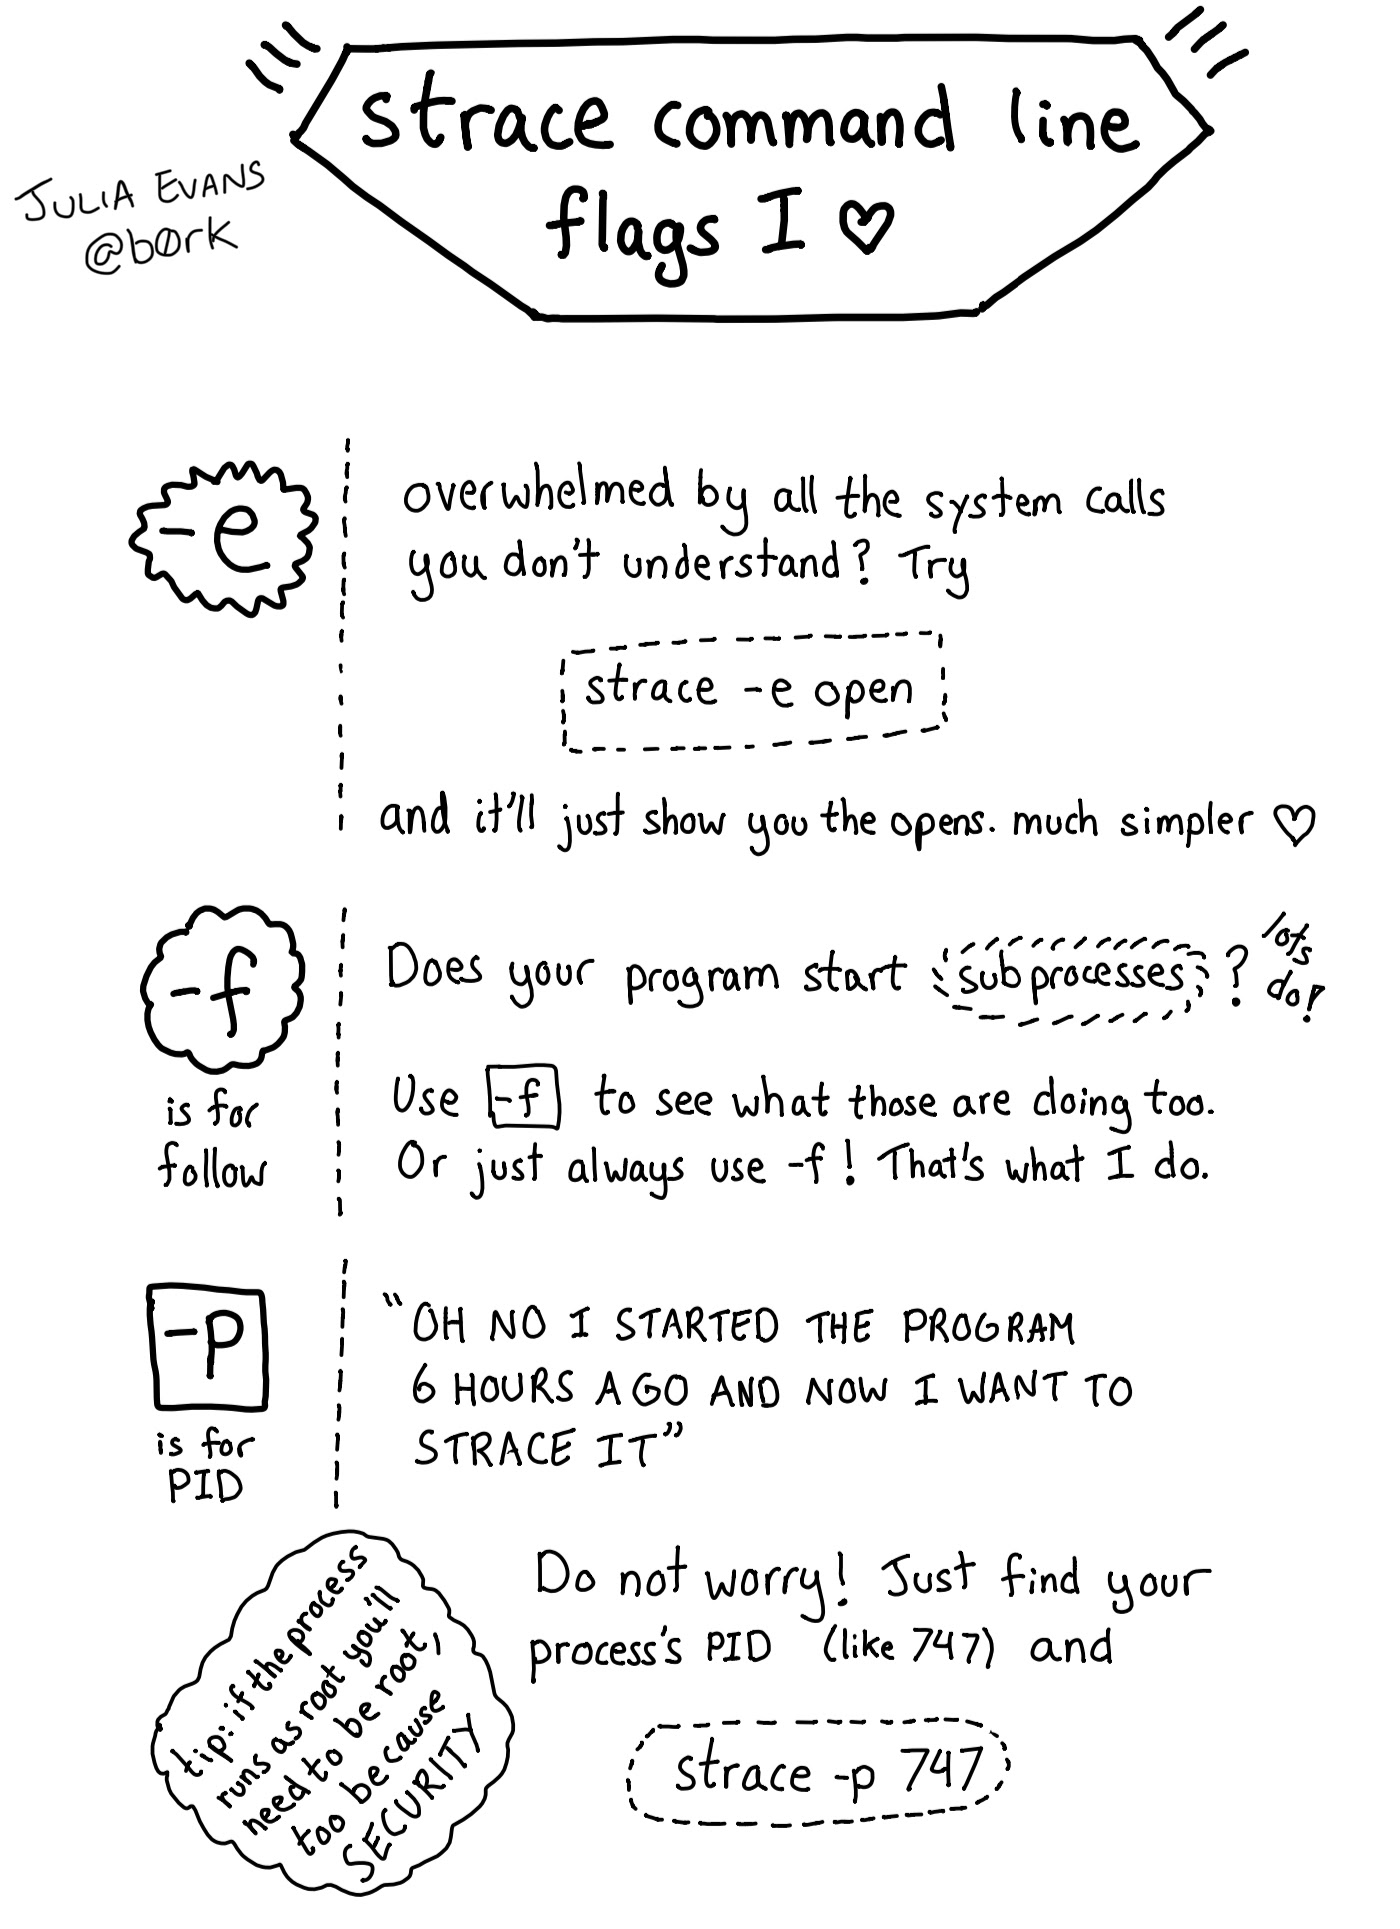 strace command line
flags I ♡
JULIA EVANS
@b0rk
-e
overwhelmed by all the system calls
you don't understand? Try
strace -e open
and it'll just show you the opens. much simpler ♡
-f
is for
follow
Does your program start subprocesses?
lots
do!
Use -f to see what those are doing too.
Or just always use -f! That's what I do.
-p
is for
PID
"OH NO I STARTED THE PROGRAM
6 HOURS AGO AND NOW I WANT TO
STRACE IT"
tip: if the process
runs as root you'll
need to be root,
too because
SECURITY
Do not worry! Just find your
process's PID (like 747) and
strace -p 747